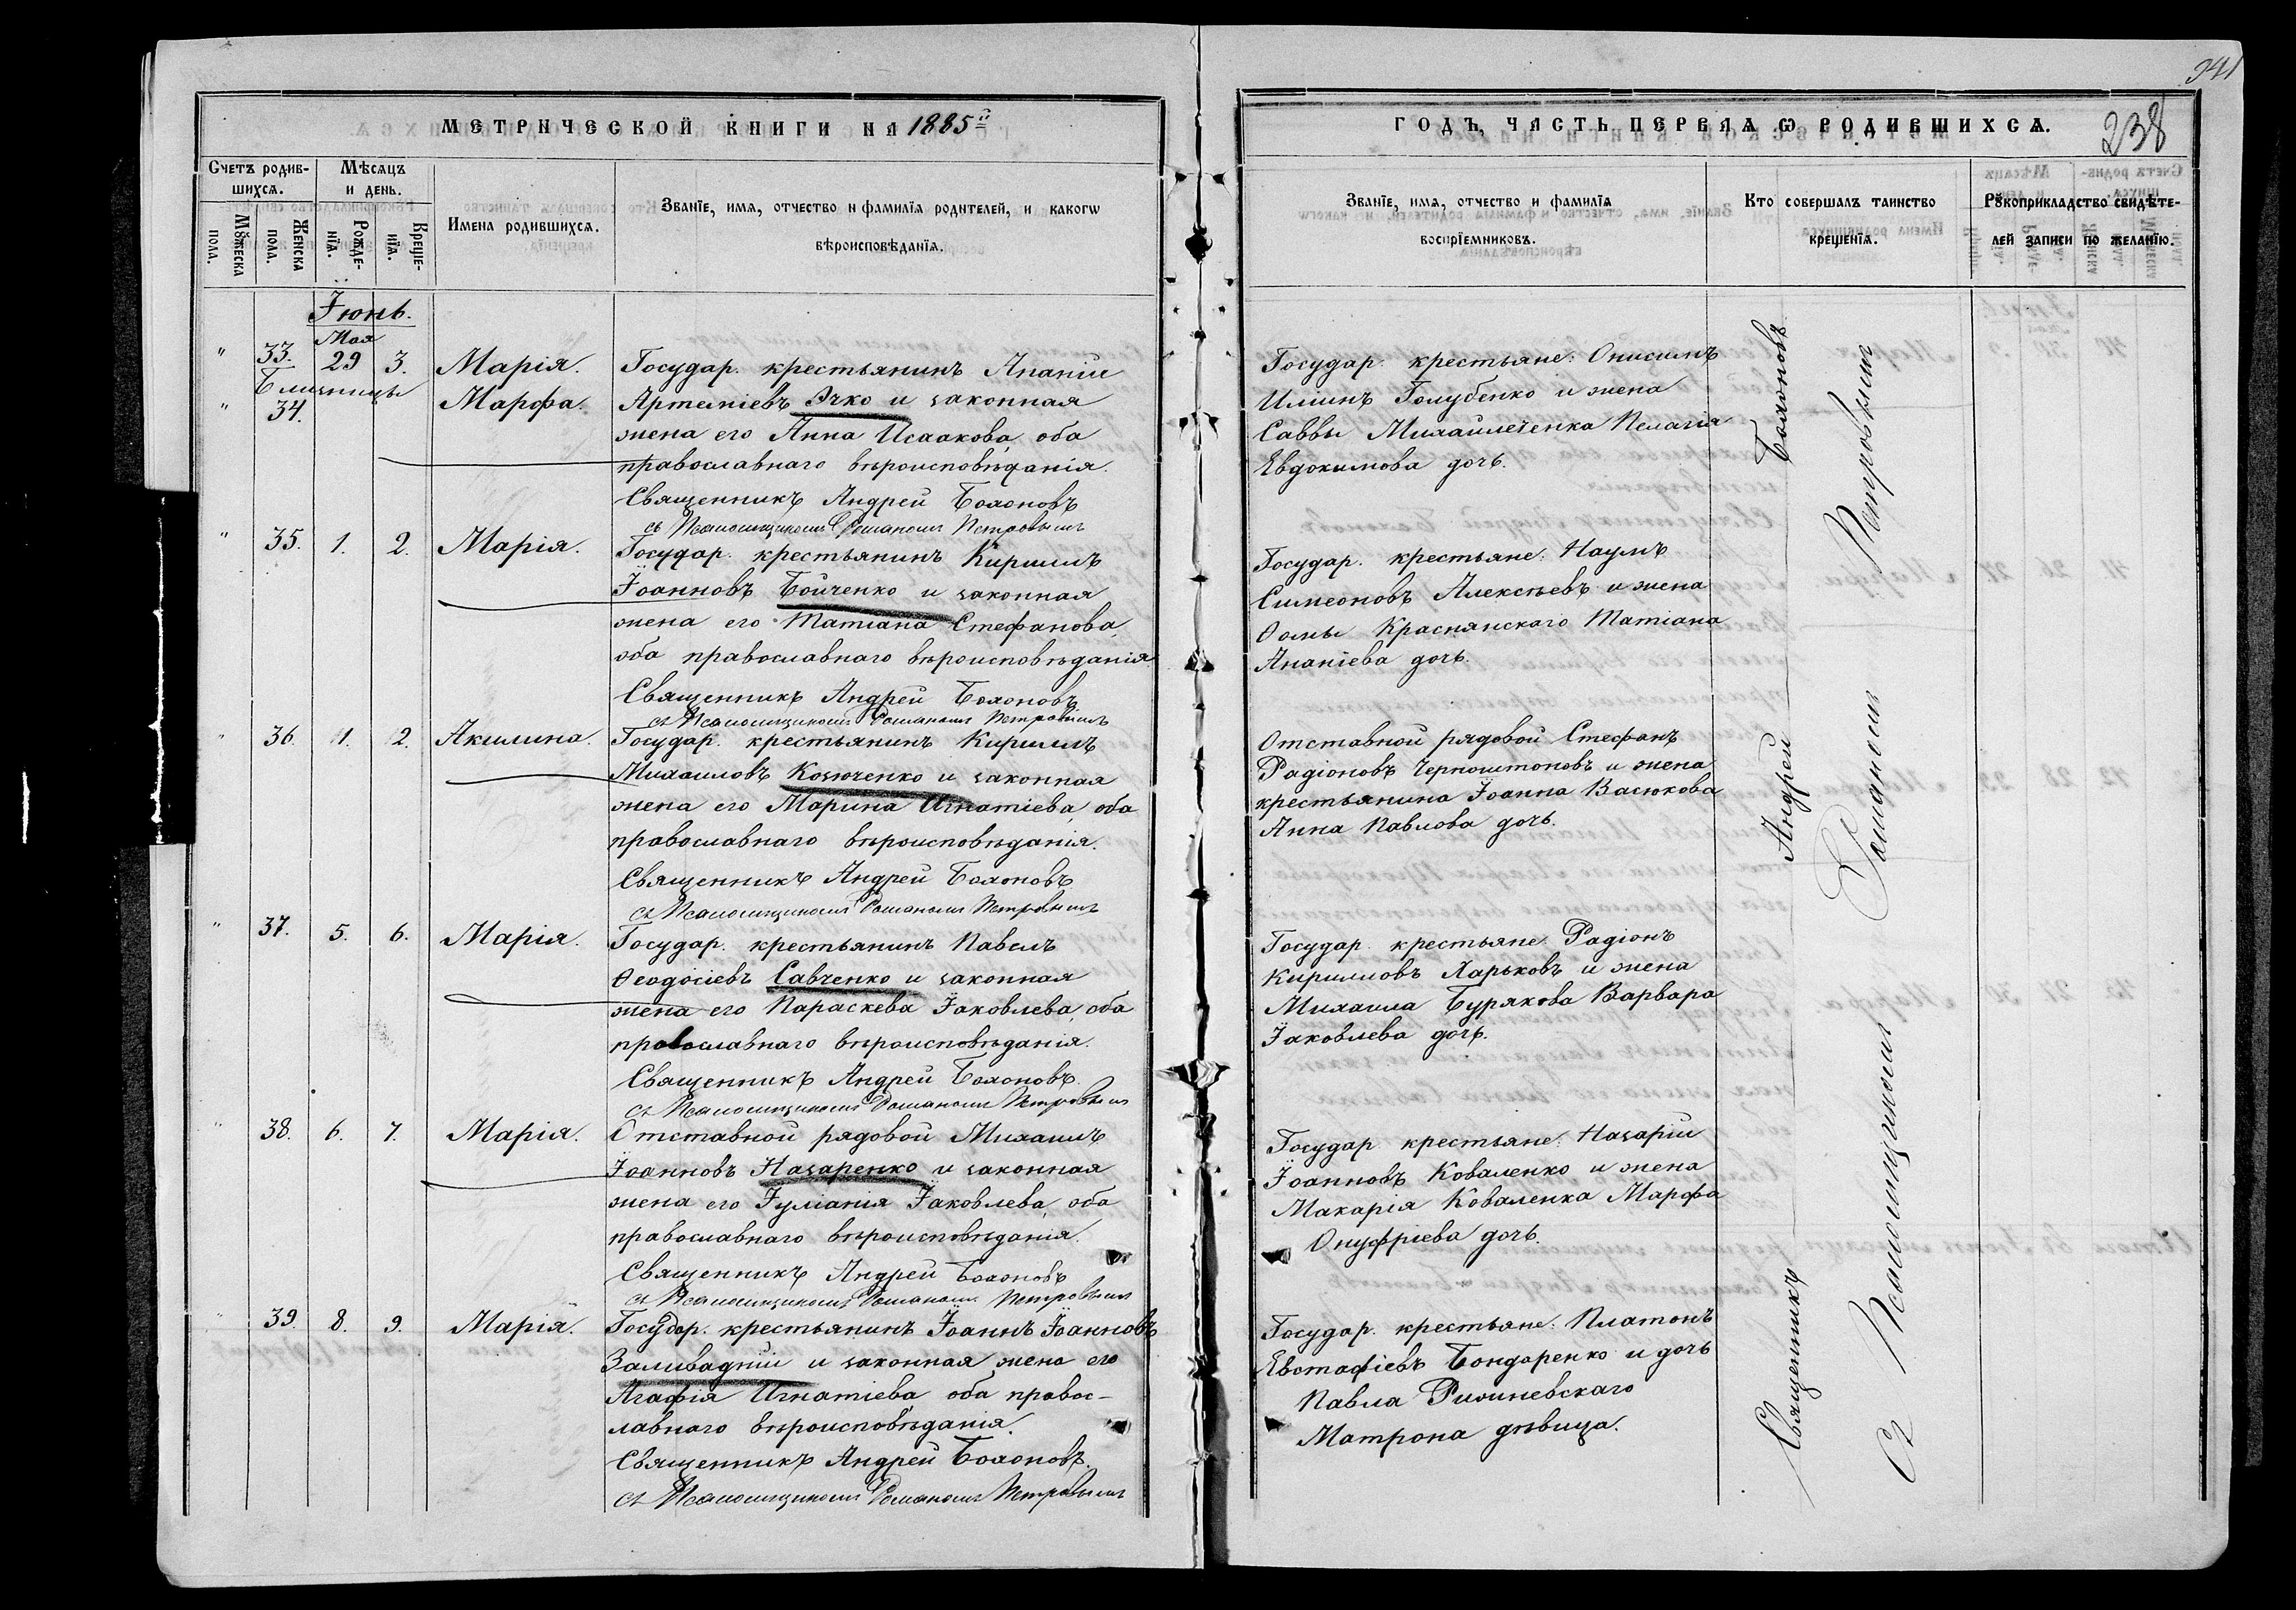 МЕТРИЧЕСКОЙ КНИГИ НА 1885й
Счетъ родив-
шихся.
Мѣсяцъ
и день.
Мꙋжеска
пола.
Женска
пола.
Рожде-
нїя.
Креще-
нїя.
Имена родившихся.
Званїе, имя, отчество и фамилїя родителей, и какогѡ
вѣроисповѣданїя.
Іюнь.
Мая
" 33. 29 3. Марія.
Близницы
" 34. Марфа.
Государ. крестьянинъ Ананій
Артеміевъ Ячко и законная
жена его Анна Исаакова, оба
православнаго вѣроисповѣданія.
Священникъ Андрей Бохоновъ
съ Псаломщикомъ Романомъ Петровымъ
" 35. 1. 2. Марія.
Государ. крестьянинъ Кириллъ
Іоанновъ Бойченко и законная
жена его Татіана Стефанова,
оба православнаго вѣроисповѣданія
Священникъ Андрей Бохоновъ
съ Псаломщикомъ Романомъ Петровымъ
" 36. 1. 2. Акилина.
Государ. крестьянинъ Кириллъ
Михаиловъ Козюченко и законная
жена его Марина Игнатіева, оба
православнаго вѣроисповѣданія.
Священникъ Андрей Бохоновъ
съ Псаломщикомъ Романомъ Петровымъ
" 37. 5. 6. Марія.
Государ. крестьянинъ Павелъ
Ѳеодосіевъ Савченко и законная
жена его Параскева Іаковлева, оба
православнаго вѣроисповѣданія.
Священникъ Андрей Бохоновъ.
съ Псаломщикомъ Романомъ Петровымъ
" 38. 6. 7. Марія.
Отставной рядовой Михаилъ
Іоанновъ Назаренко и законная
жена его Іуліанія Іаковлева, оба
православнаго вѣроисповѣданія.
Священникъ Андрей Бохоновъ
съ Псаломщикомъ Романомъ Петровымъ
" 39. 8. 9. Марія.
Государ. крестьянинъ Іоаннъ Іоанновъ
Заливадній и законная жена его
Агафія Игнатіева, оба правос-
лавнаго вѣроисповѣданія.
Священникъ Андрей Бохоновъ.
съ Псаломщикомъ Романомъ Петровымъ
941
ГОДЪ, ЧАСТЬ ПЕРВАЯ Ѡ РОДИВШИХСЯ.
238
Званїе, имя, отчество и фамилїя
воспрїемниковъ.
Кто совершалъ таинство
крещенїя.
Рꙋкоприкладство свидѣте-
лей записи по желанїю.
Государ. крестьяне: Онисимъ
Иліинъ Голубенко и жена
Саввы Михайличенка Пелагія
Евдокимова дочь.
Государ. крестьяне: Наумъ
Симеоновъ Алексѣевъ и жена
Ѳомы Краснянскаго Татіана
Ананіева дочь.
Отставной рядовой Стефанъ
Радіоновъ Черноштоновъ и жена
крестьянина Іоанна Васюкова
Анна Павлова дочь.
Государ. крестьяне Радіонъ
Кирилловъ Харьковъ и жена
Михаила Бурякова Варвара
Іаковлева дочь.
Государ. крестьяне: Назарій
Іоанновъ Коваленко и жена
Макарія Коваленка Марфа
Онуфріева дочь.
Государ. крестьяне: Платонъ
Евстафіевъ Бондаренко и дочь
Павла
Матрона дѣвица.
Священникъ Андрей Бохоновъ
Съ Псаломщикомъ Романомъ Петровымъ